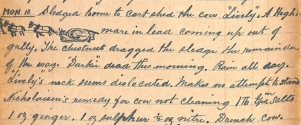 MON 10 Sledged home to Cart shed the cow "Lively". A Hugh's
mare in lead coming up out of
gully. The chestnut dragged the sledge the remainder
of the way. Darkie dead this morning. Rain all day.
Lively's neck seems dislocated. Makes no attempt to stand
Nicholaisen's remedy for cow not cleaning 1 lb Epsm Salts
1 oz ginger. 1 oz sulphur ½ oz nitre. Drench cow.